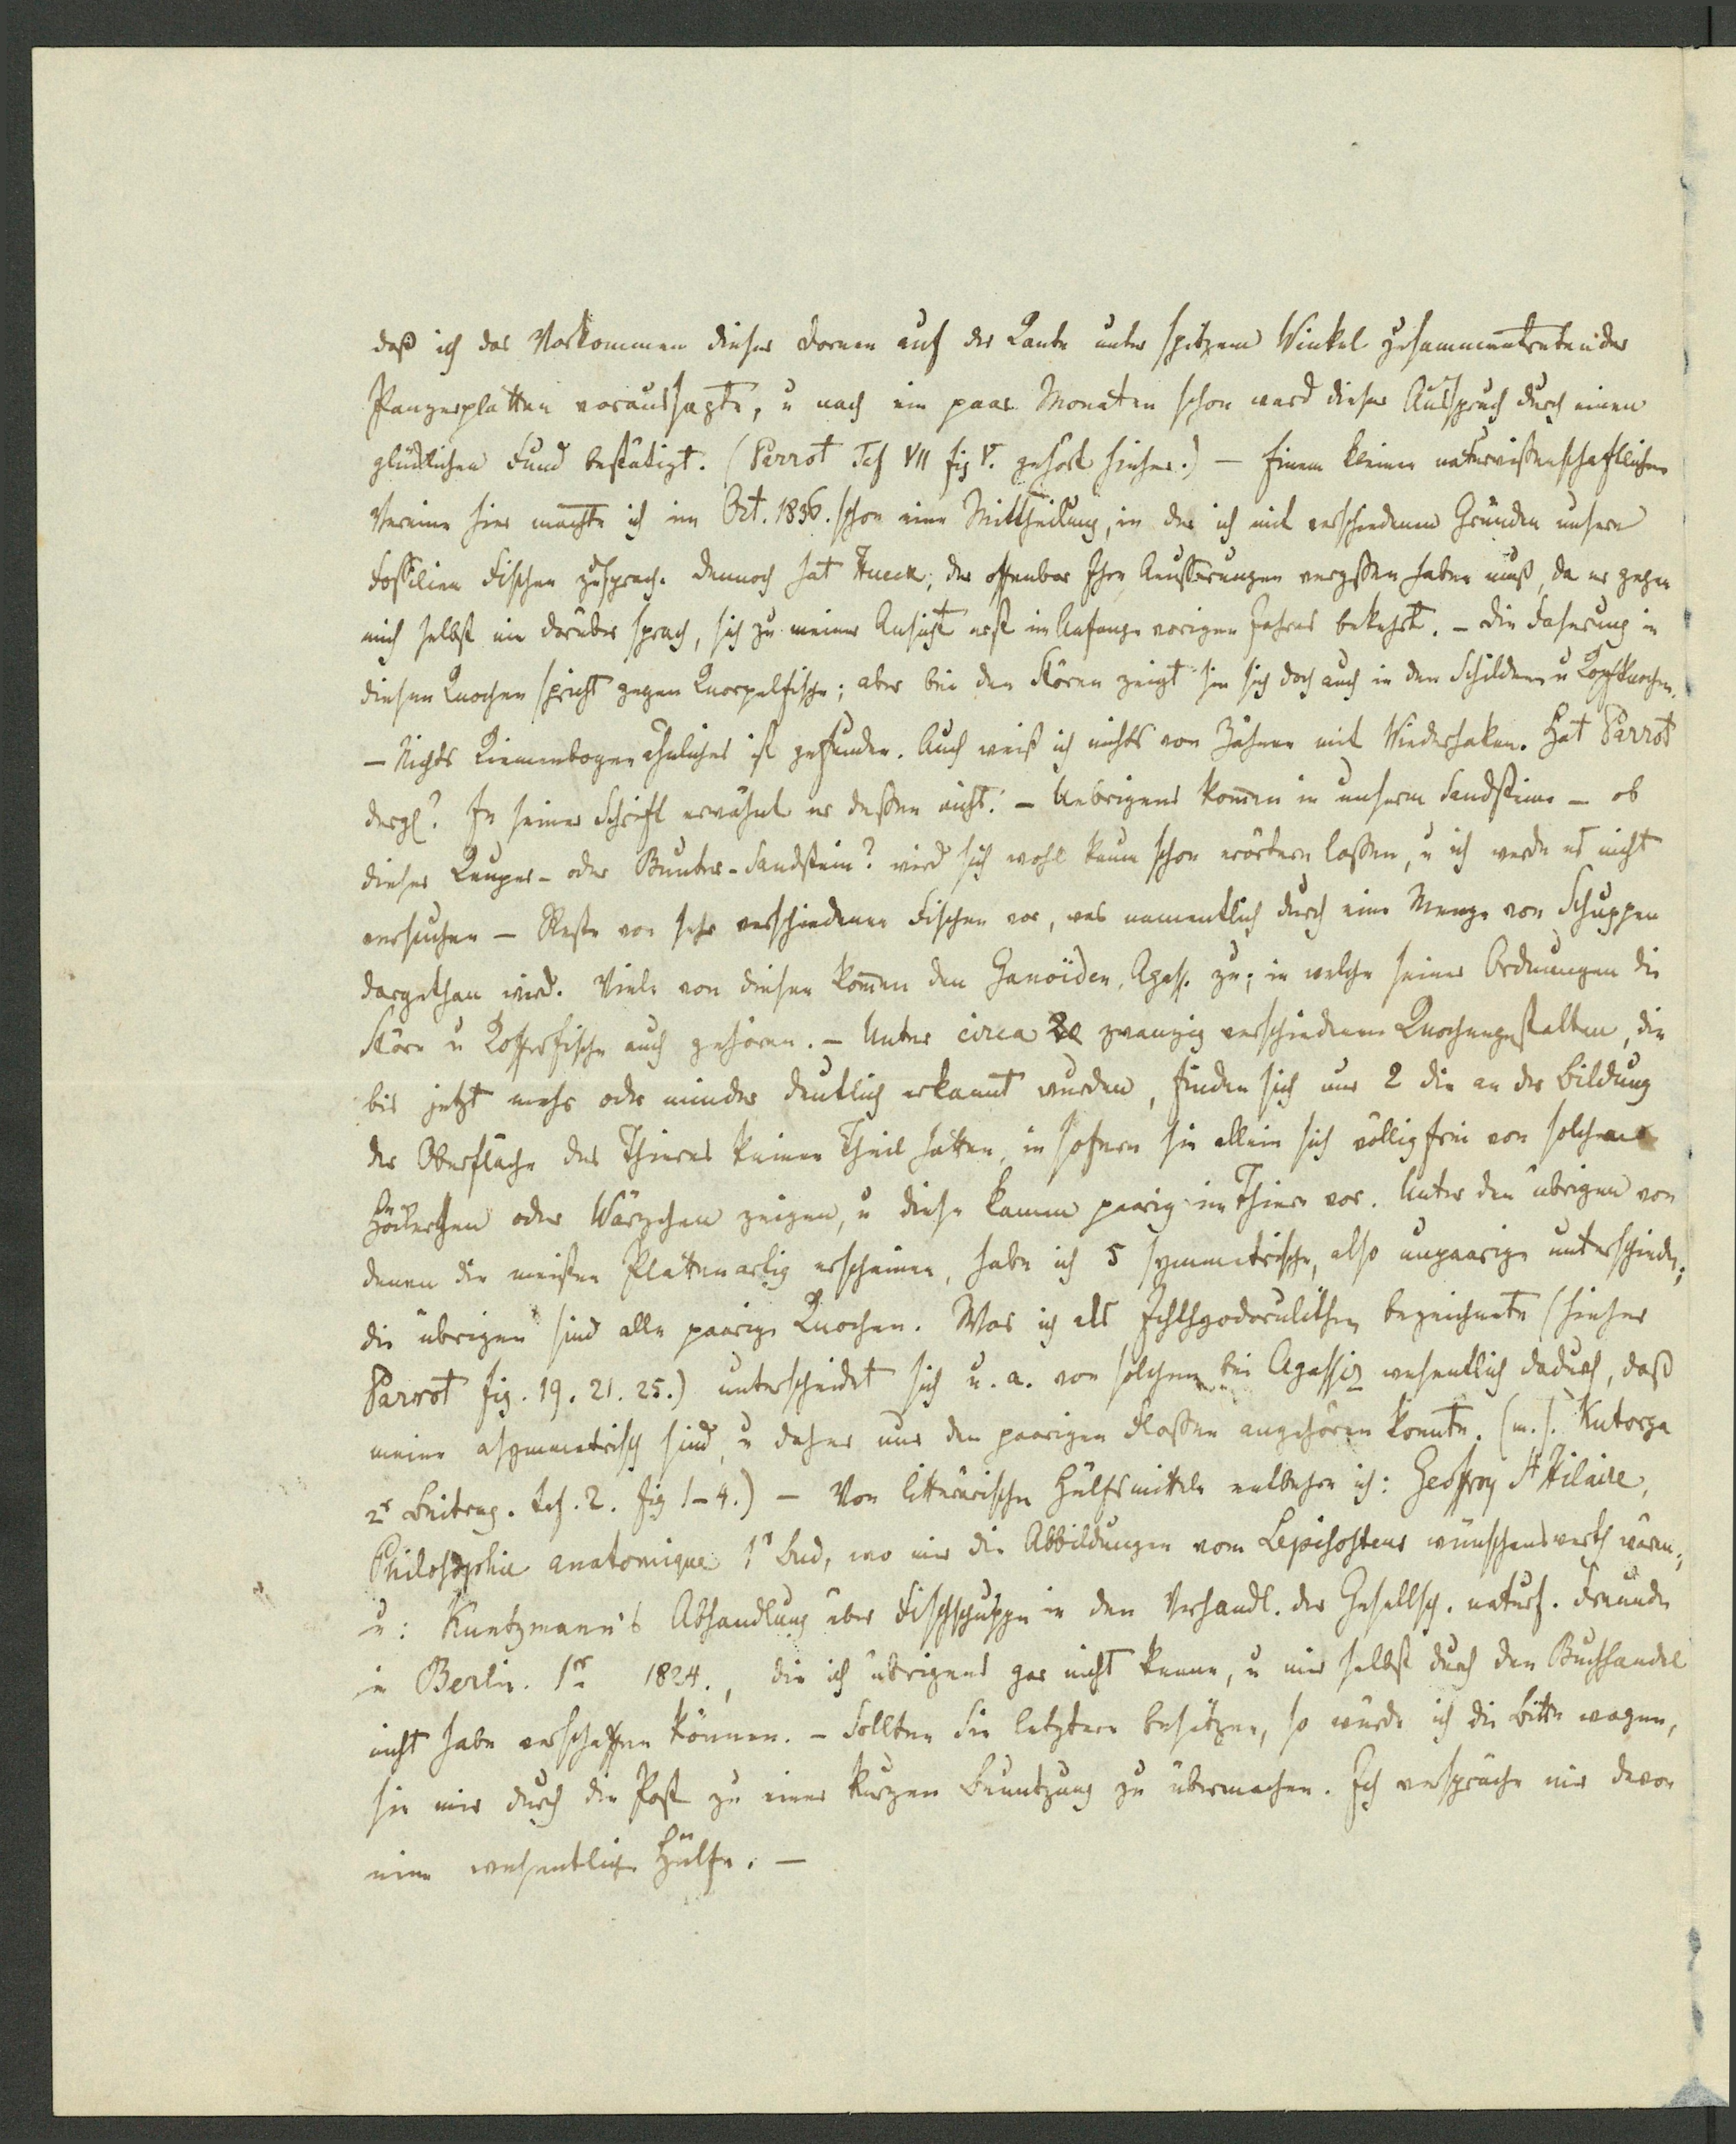 daß ich das Vorkommen dieser Dornen auf der Kante unter spitzem Winkel zusammentretender
Panzerplatten voraussagte, u nach ein paar Monaten schon ward dieser Ausspruch durch einen
glücklichen Fund bestätigt. (Parrot Taf VII fig V. gehört hieher.) – Einem kleinen naturwißenschaftlichen
Vereine hier machte ich im Oct. 1836. schon eine Mittheilung, in der ich mit verschiedenen Gründen unsere
Foßilien Fischen zusprach. Dennoch hat Hueck, der offenbar Ihre Aeußerungen vergeßen haben muß, da er gegen
mich selbst nie darüber sprach, sich zu meiner Ansicht erst im Anfange vorigen Jahres bekehrt. – Die Faserung in
diesen Knochen spricht gegen Knorpelfische; aber bei den Stören zeigt sie sich doch auch in den Schildern u Kopfknochen.
– Nichts Kiemenbogen ähnliches ist gefunden. Auch weiß ich nichts von Zähnen mit Wiederhaken. Hat Parrot
dergl? In seiner Schrift erwähnt er deßen nicht. – Uebrigens kom̄en in unserm Sandsteine – ob
dieser Keuper- oder Bunter-Sandstein? wird sich wohl kaum schon erörtern laßen, u ich werde es nicht
versuchen – Reste von sehr verschiedenen Fischen vor, was namentlich durch eine Menge von Schuppen
dargethan wird. Viele von diesen kom̄en den Ganoïden, Agass. zu; in welche seiner Ordnungen die
Störe u Kofferfische auch gehören. – Unter circa 20 zwanzig verschiedenen Knochengestalten, die
bis jetzt mehr oder minder deutlich erkannt wurden, finden sich nur 2 die an der Bildung
der Oberfläche des Thieres keinen Theil hatten, in sofern sie allein sich völlig frei von solchen
Höckerchen oder Wärzchen zeigen, u diese kamen paarig im Thiere vor. Unter den übrigen von
denen die meisten Plattenartig erscheinen, habe ich 5 symmetrische, also unpaarige unterschieden;
die übrigen sind alle paarige Knochen. Was ich als Ichthyodorulithen bezeichnete (hieher
Parrot fig. 19. 21. 25.) unterscheidet sich u. a. von solchen bei Agassiz wesentlich dadurch, daß
meine asymmetrisch sind, u daher nur den paarigen Floßen angehören konnte. (m. s. Kutorga
2r Beitrag. Taf. 2. fig 1–4.) – Von litterärischen Hülfsmitteln entbehre ich: Geoffroy St Hilaire,
Philosophie anatomique 1r Bnd, wo mir die Abbildungen vom Lepisosteus wünschenswerth wären;
u: Kuntzmann's Abhandlung über Fischschuppen in den Verhandl. der Gesellsch. naturf. Freunde
in Berlin. 1r 1824., die ich übrigens gar nicht kenne, u mir selbst durch den Buchhandel
nicht habe verschaffen können. – Sollten Sie letztere besitzen, so würde ich die Bitte wagen,
sie mir durch die Post zu einer kurzen Benutzung zu übermachen. Ich verspräche mir davon
eine wesentliche Hülfe. –